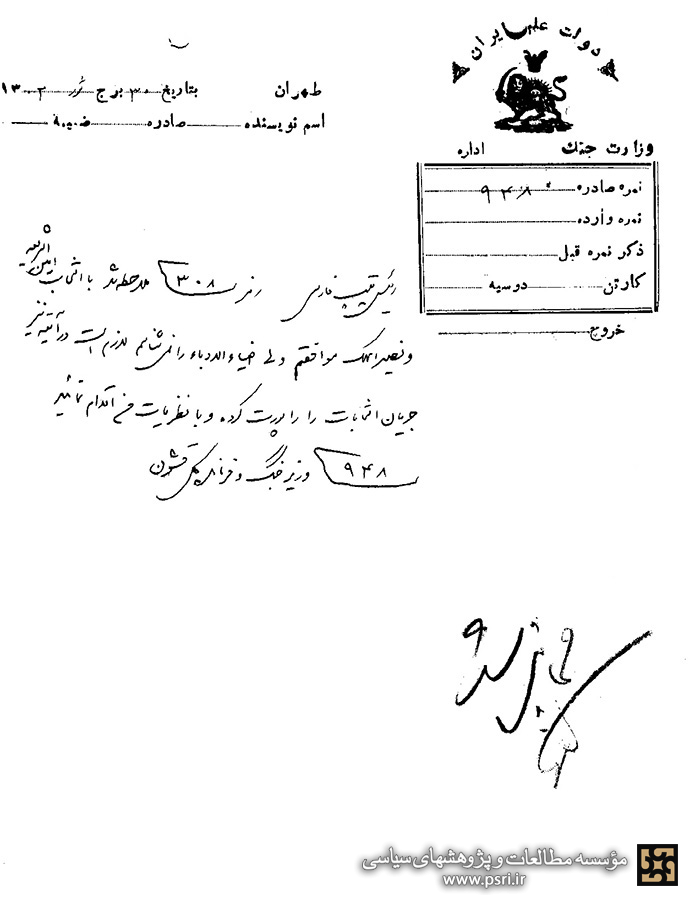 دولت علیه ایران
وزارت جنگ
اداره
نمره صادره ۹۴۸
نمره وارده
ذکر نمره قبل
کارتن دوسیه
خروج
طهران بتاریخ ۳۰ برج ۱۳۰۲
اسم نویسنده صادره ضمیمه
رئیس تیپ فارس رمز ۳۰۸ ملاحظه شد با انتخاب امین الشریعه
و نصیرالملک موافقم ولی ضیاءالادباء را نمی‌شناسم لازم است در آتیه نیز
جریان انتخابات را راپورت کرده و با نظریات من اقدام نمائید
۹۴۸ وزیر جنگ و فرمانده کل قشون
مؤسسه مطالعات و پژوهشهای سیاسی
www.psri.ir